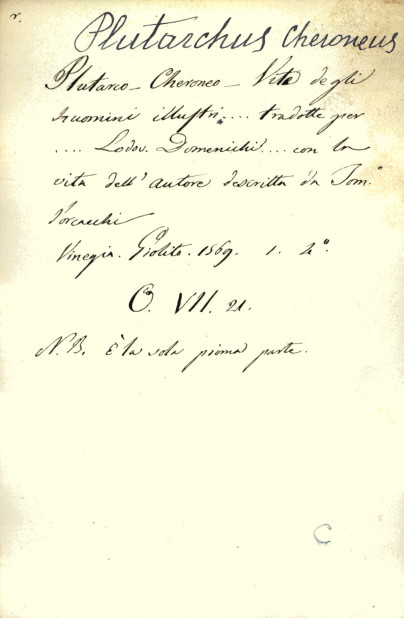 r.
Plutarchus Cheroneus
Plutarco - Cheroneo - Vite degli
huomini illustri .... tradotte per
.... Lodov. Domenichi .... con la
vita dell' autore descritta da Tom.º
Porcacchi
Vinegia. Giolito. 1569. 1. 4º.
O. VII. 21.
N.B. È la sola prima parte.
C